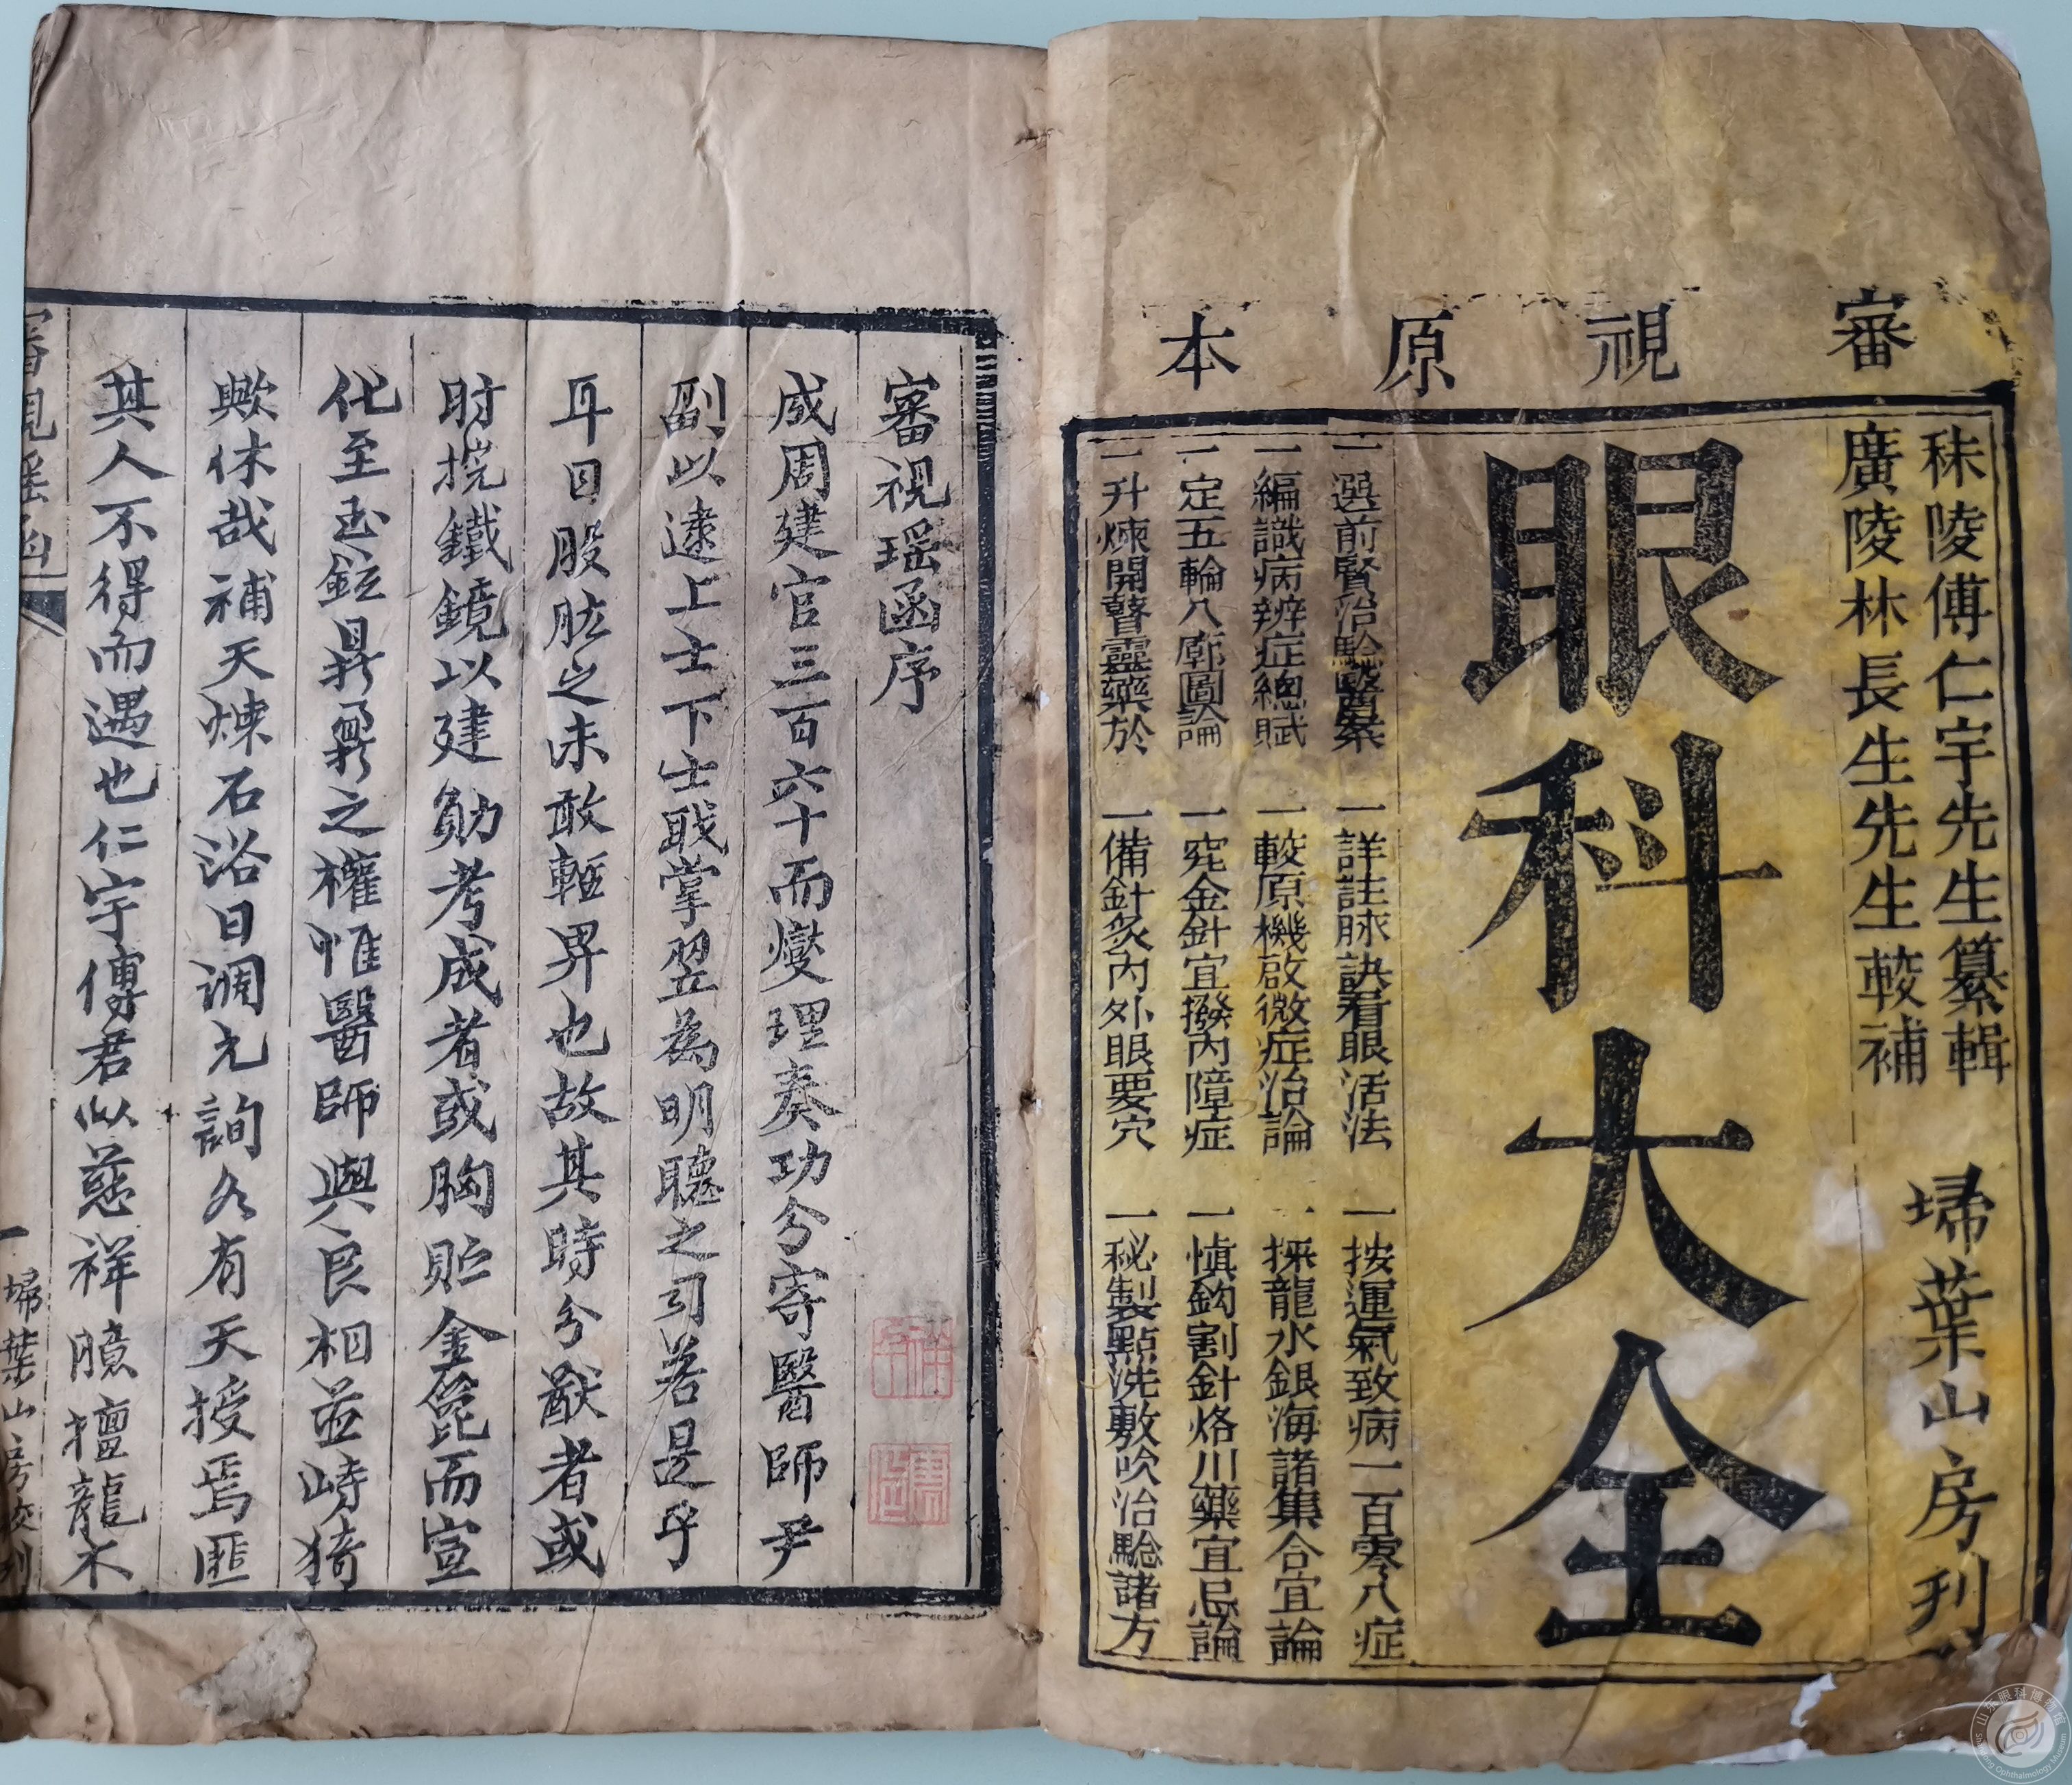 審視原本
秣陵傅仁宇先生纂輯
廣陵林長生先生較補
埽葉山房刋
眼科大全
一選前賢治驗醫案
一詳註脉訣看眼活法
一按運氣致病一百零八症
一編識病辨症總賦
一較原機啟微症治論
一採龍水銀海諸集合宜論
一定五輪八廓圖論
一究金針宜撥內障症
一慎鈎割針烙川藥宜忌論
一升煉開瞽靈藥於
一備針灸內外眼要穴
一秘製點洗敷吹治驗諸方
審視瑶函序
成周建官三百六十而燮理奏功兮寄醫師尹
副以逺上士下士戢掌翌為明聽之司若是乎
耳目股肱之未敢輊畀也故其時兮猷者或
肘挽鐵鏡以建勛考成者或胸貯金箆而宣
化至玉鉉鼎鼐之權惟醫師與良相並峙猗
歟休哉補天煉石浴日調元詢乆有天授焉匪
其人不得而遇也仁宇傅君似慈祥臆擅龍木
審視瑶函
一
埽葉山房校刋
山东眼科博物馆
Shandong Ophthalmology Museum